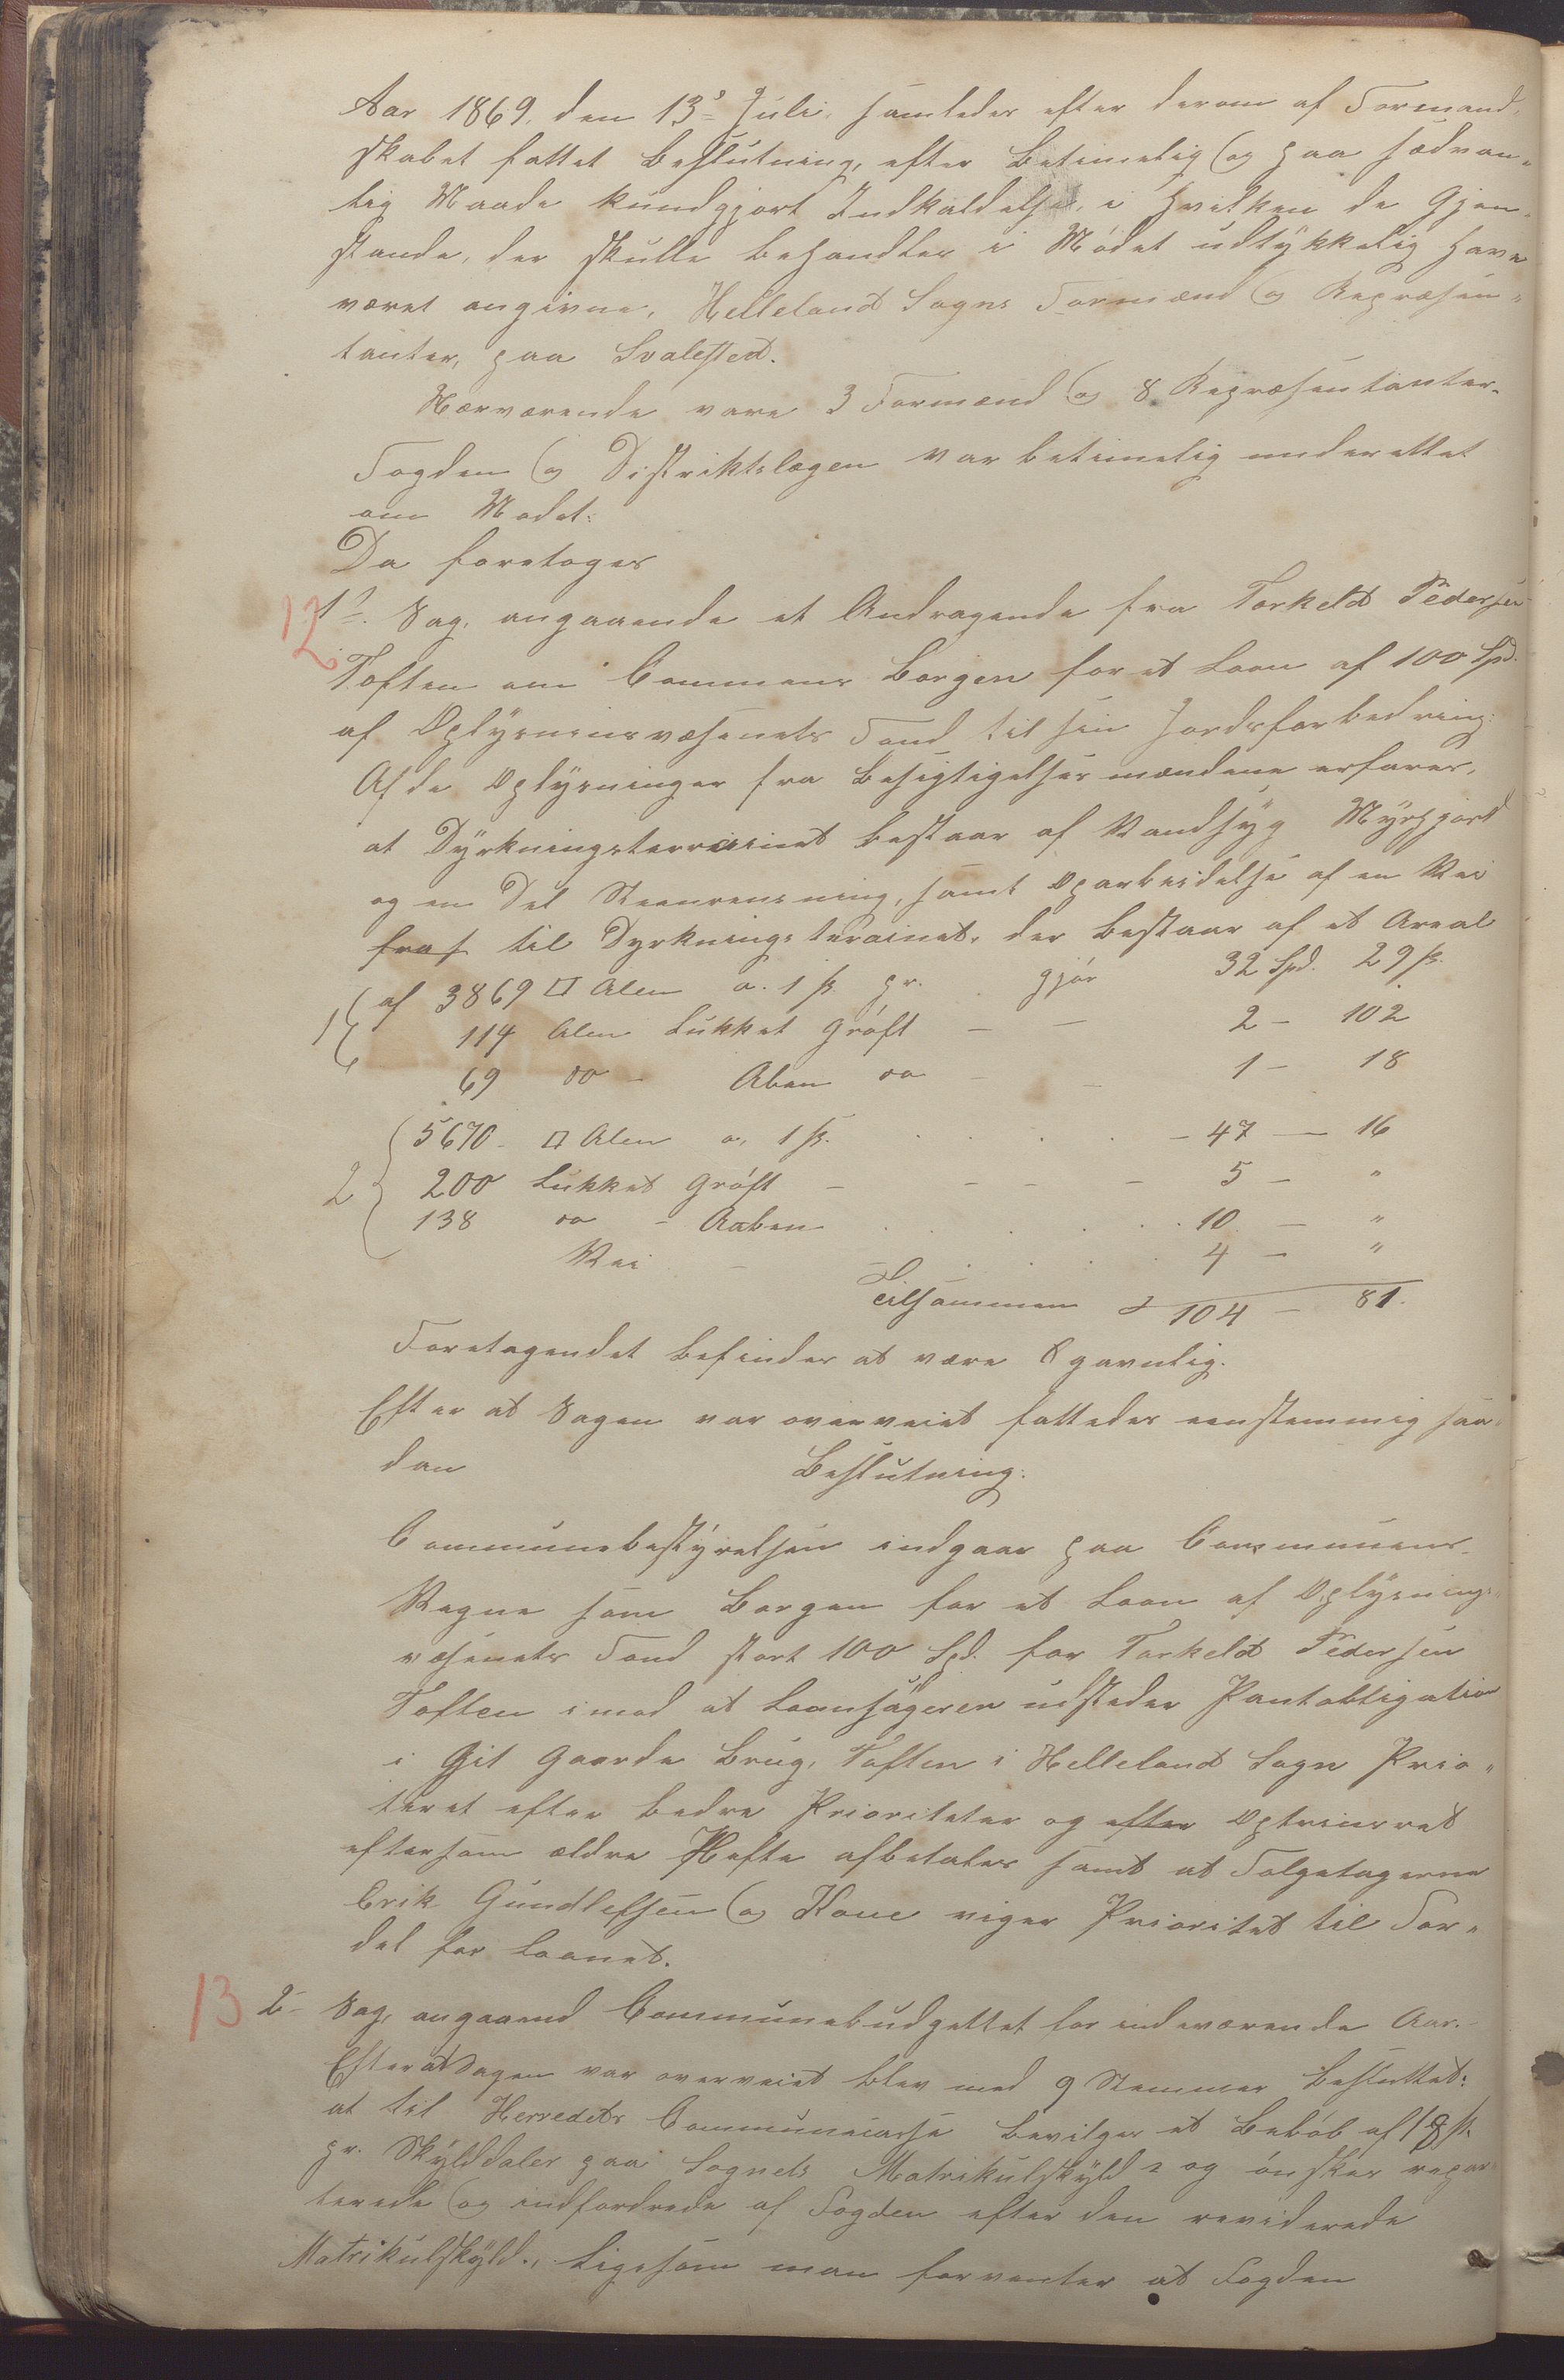 Aar 1869. den 13s Juli, samledes efter derom af Formand,
skabet fattet Beslutning, efter betimelig og paa sædvan-
lig Maade kundgjort Indkaldelse, i hvilken de Gjen-
stande, der skulle behandles i Mødet udtykkelig have
været angivne, Helleland Sogns Formænd og Repræsen-
tanter, paa Svalested.
Nærværende vare 3 Formænd og 8 Repræsentanter.
Fogden og Distriktslægen var betimelig underettet
om Mødet:
Da foretoges
12 1ste Sag, angaaende et Andragende fra Torkeld Pedersen
Toften om Communs Borgen for et Laan af 100 Spd.
af Oplysninsvæsenets Fond til sin Jordsforbedring:
Af de Oplysninger fra Besigtigelsesmændene erfares,
at Dyrkningsterrainet bestaar af Vandsyg Myrhjord
og en Del Steenrensning, samt Oparbeidelse af en Vei
fra s til Dyrkningsterainet, der bestaar af et Areal
1 af 3869 □ Alen a. 1 ß pr. gjør 32 Spd. 29 ß.
114 Alen Lukket Grøft — — 2 — 102
69 do — Aben do — — 1 — 18
5670 □ Alen a, 1 ß. . . . . — 47 — 16
2 200 Lukket Grøft — — — — 5 — "
138 do — Aaben . . . . . 10 — "
Vei — — . . . . 4 — "
Tilsammen 104 — 81.
Foretagendet befindes at være gavnlig.
Efter at Sagen var overveiet fattedes eenstemmig saa-
dan Beslutning:
Communebestyrelsen indgaar paa Communens
Vegne som Borgen for et Laan af Oplysnings-
væsenets Fond stort 100 Spd. for Torkeld Pedersen
Toften imod at Laansøgeren udsteder Pantobligation
i Git Gaards Brug, Toften i Helleland Sogn Prio-
teret efter bedre Prioriteter og efter Optrinsret
eftersom ældre Hefte afbetales samt at Folgetagerne
Erik Gundlefsen og Kone viger Prioritet til For-
del for Laanet.
13 2- Sag, angaaend Communebudgettet for indeværende Aar.
Efter at Sagen var overveiet blev med 9 Stemmer besluttet:
at til Herredets Communecasse bevilges et Beløb af 18 ß
pr. Skylddaler paa Sognets Matrikulskyld og ønskes repar-
terede og indfordrede af Fogden efter den reviderede
Matrikulskyld., Ligesom man forventer at Fogden